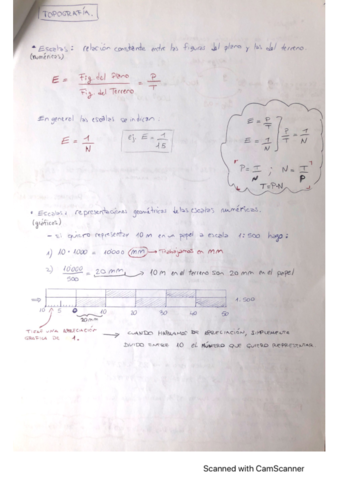 TOPOGRAFÍA.
• Escalas: relación constante entre las figuras del plano y las del terreno.
(numéricas)
E = Fig. del Plano / Fig. del Terreno = P / T
En general las escalas se indican
E = 1 / N
Ej. E = 1 / 15
E = P / T
E = 1 / N
P / T = 1 / N
P = T / N ; N = T / P
T = P·N
• Escalas: representaciones geométricas de las escalas numéricas.
(gráficas)
- si quiero representar 10 m en un papel a escala 1:500 hago:
1) 10 · 1000 = 10000 mm → Trabajamos en mm
2) 10000 / 500 = 20 mm → 10 m en el terreno son 20 mm en el papel
1:500
10 5 0 10 20 30 40 50
20 mm
TIENE UNA APRECIACIÓN
GRÁFICA DE 1.
CUANDO HABLAMOS DE APRECIACIÓN, SIMPLEMENTE
DIVIDO ENTRE 10 EL NÚMERO QUE QUIERO REPRESENTAR
Scanned with CamScanner